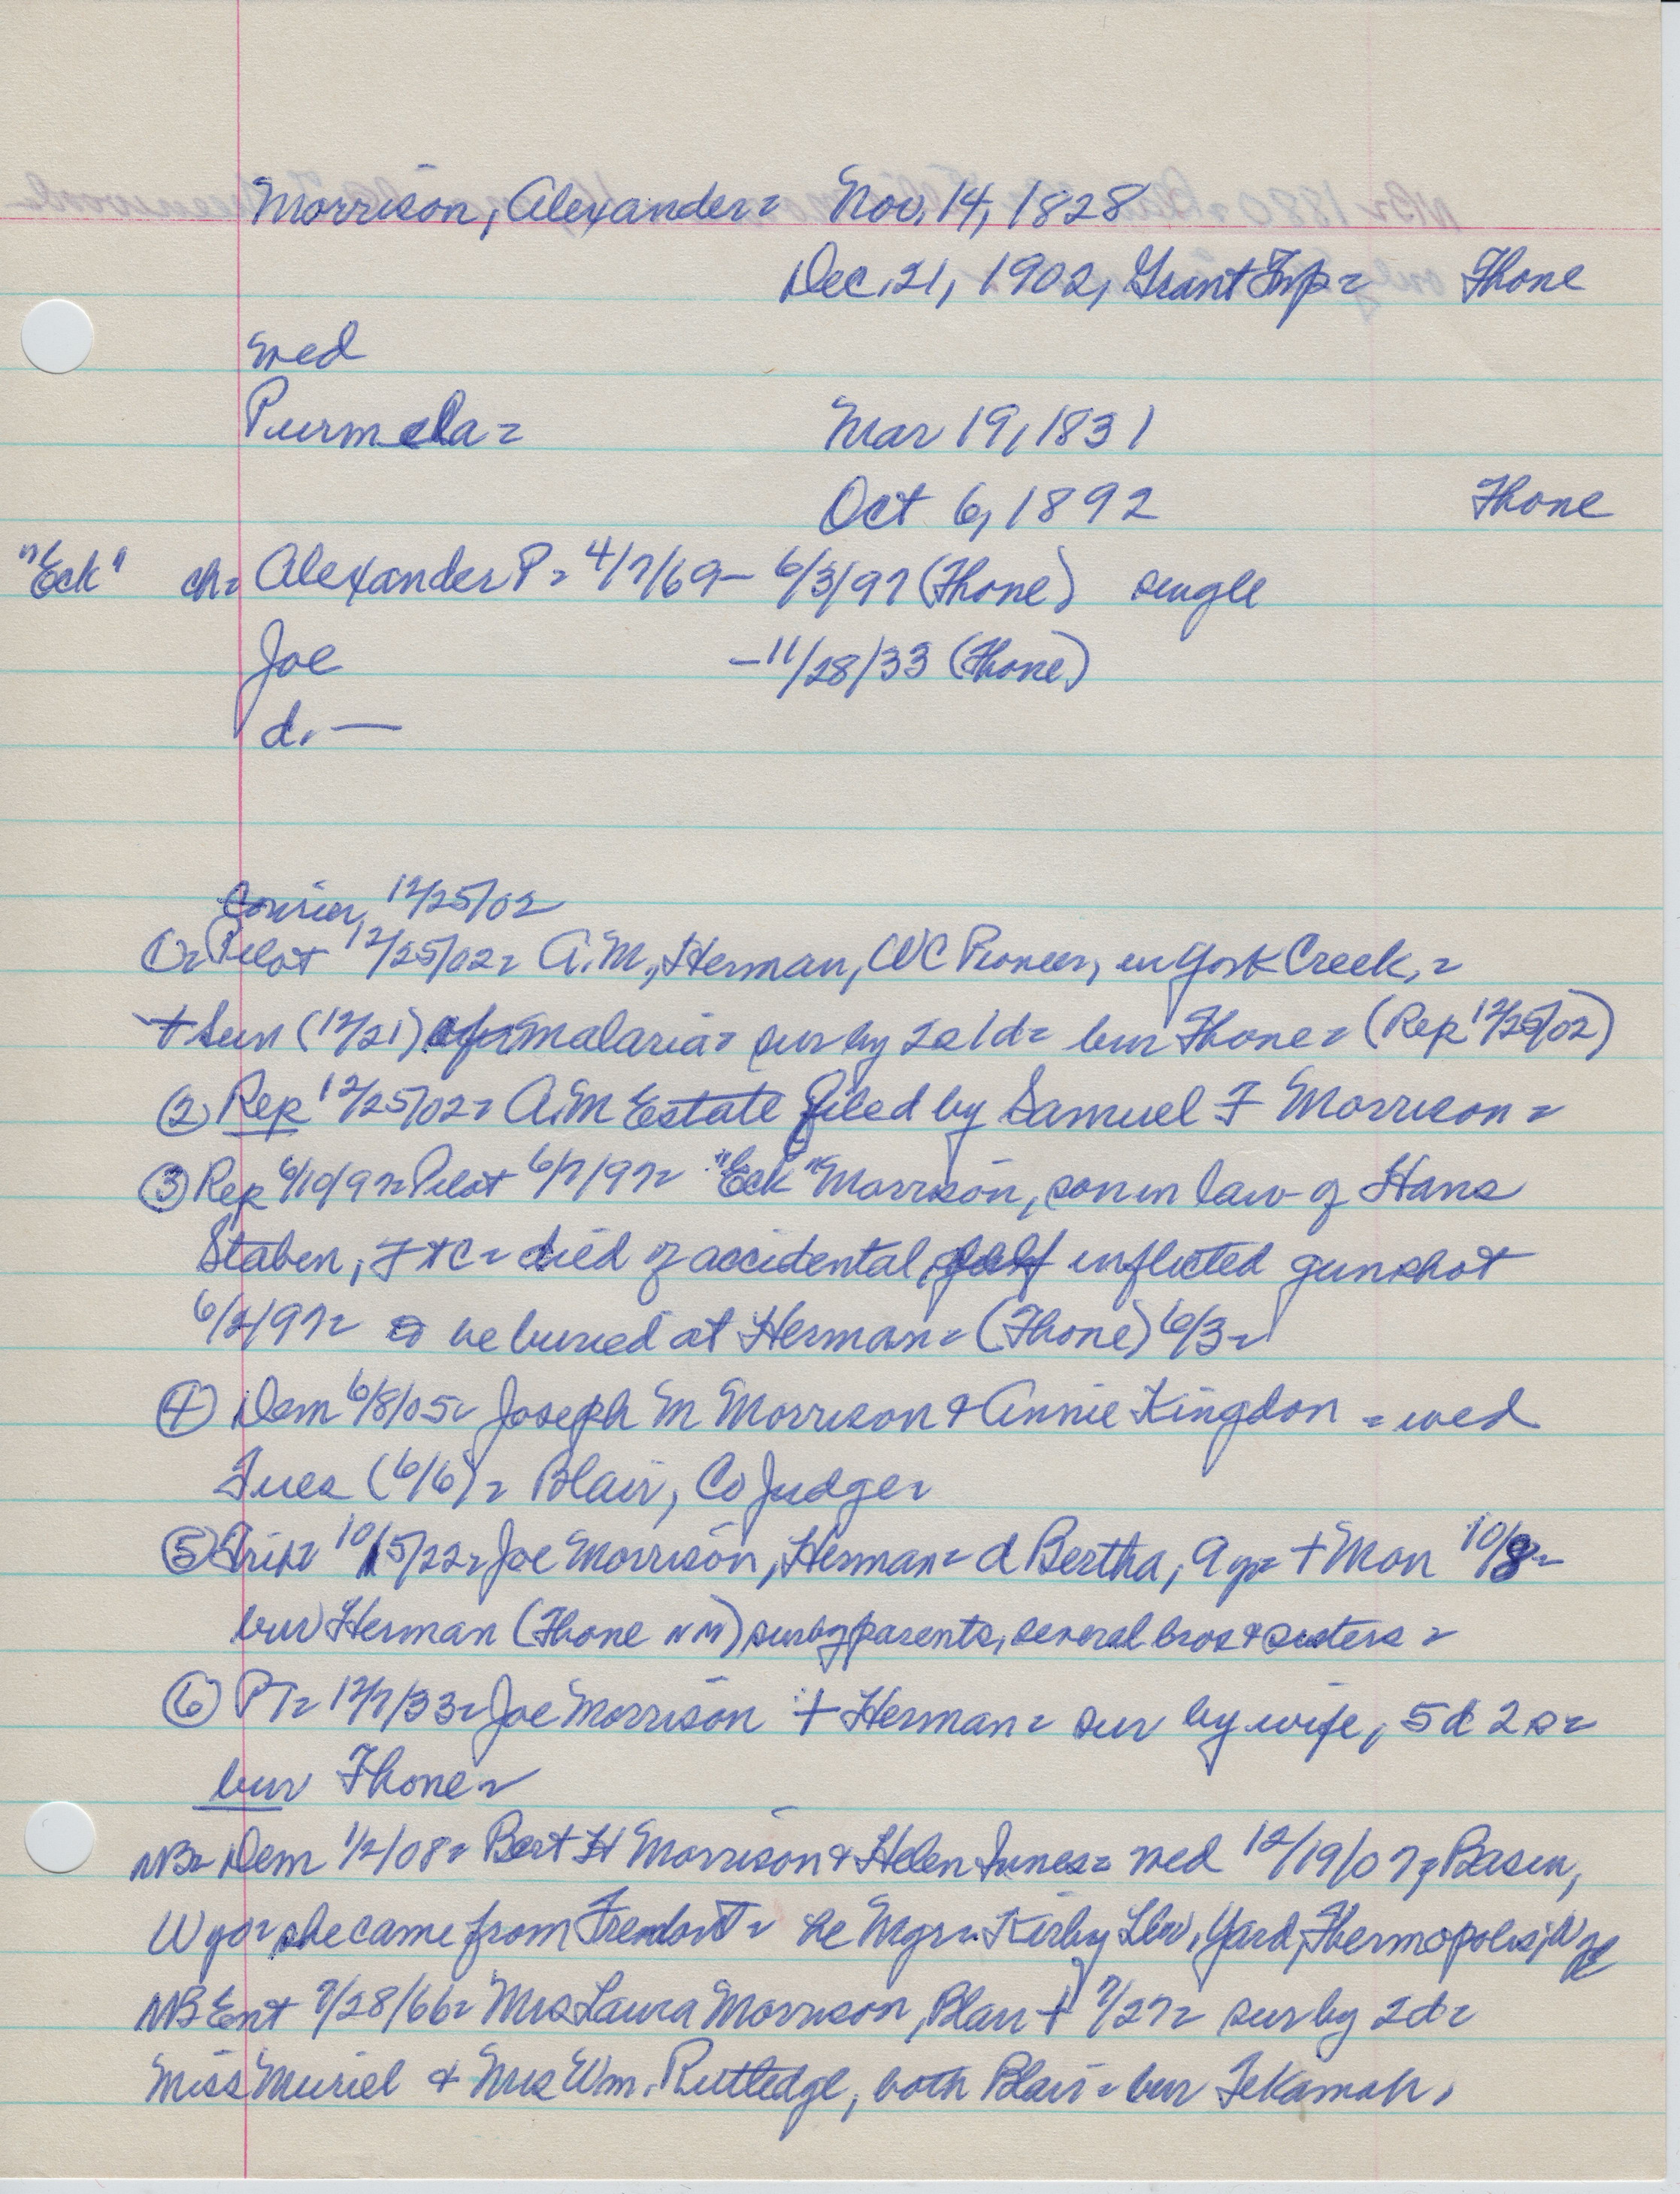 Morrison, Alexander = Nov. 14, 1828
Dec. 21, 1902, Grant Twp = Fhone
wed
Purmela = Mar 19, 1831
Oct 6, 1892 Fhone
"Eck" ch = Alexander P. = 4/7/69 - 6/3/97 (Fhone) single
Joe - 11/28/33 (Fhone)
d. —
Courier, 12/25/02
① = Pilot 12/25/02 = A.M., Herman, WC Pioneer, in York Creek, =
+ Sun (12/21) of malaria = sur by 2s 1d = bur Fhone = (Rep 12/25/02)
② Rep 12/25/02 = A.M Estate filed by Samuel F Morrison =
③ Rep 6/10/97 = Pilot 6/7/97 = "Eck" Morrison, son in law of Hans
Staben, Ft C = died of accidental, self inflicted gunshot
6/2/97 = to be buried at Herman = (Fhone) 6/3 =
④ Dem 6/8/05 = Joseph M Morrison & Annie Kingdon = wed
Tues (6/6) = Blair, Co Judge =
⑤ Trib = 10/15/22 = Joe Morrison, Herman = d Bertha, 9 yr = + Mon 10/8 =
bur Herman (Fhone NM) sur by parents, several bros & sisters =
⑥ PT = 12/7/33 = Joe Morrison + Herman = sur by wife, 5d 2s =
bur Fhone =
NB = Dem 1/2/08 = Bert H Morrison & Helen Innes = wed 12/19/07 = Basin,
Wyo = she came from Fremont = he Mgr = Kirby Lbr. Yard, Thermopolis, Wyo
NB Ent 7/28/66 = Mrs Laura Morrison, Blair + 7/27 = sur by 2d =
Miss Muriel & Mrs Wm. Rutledge, both Blair = bur Tekamah.